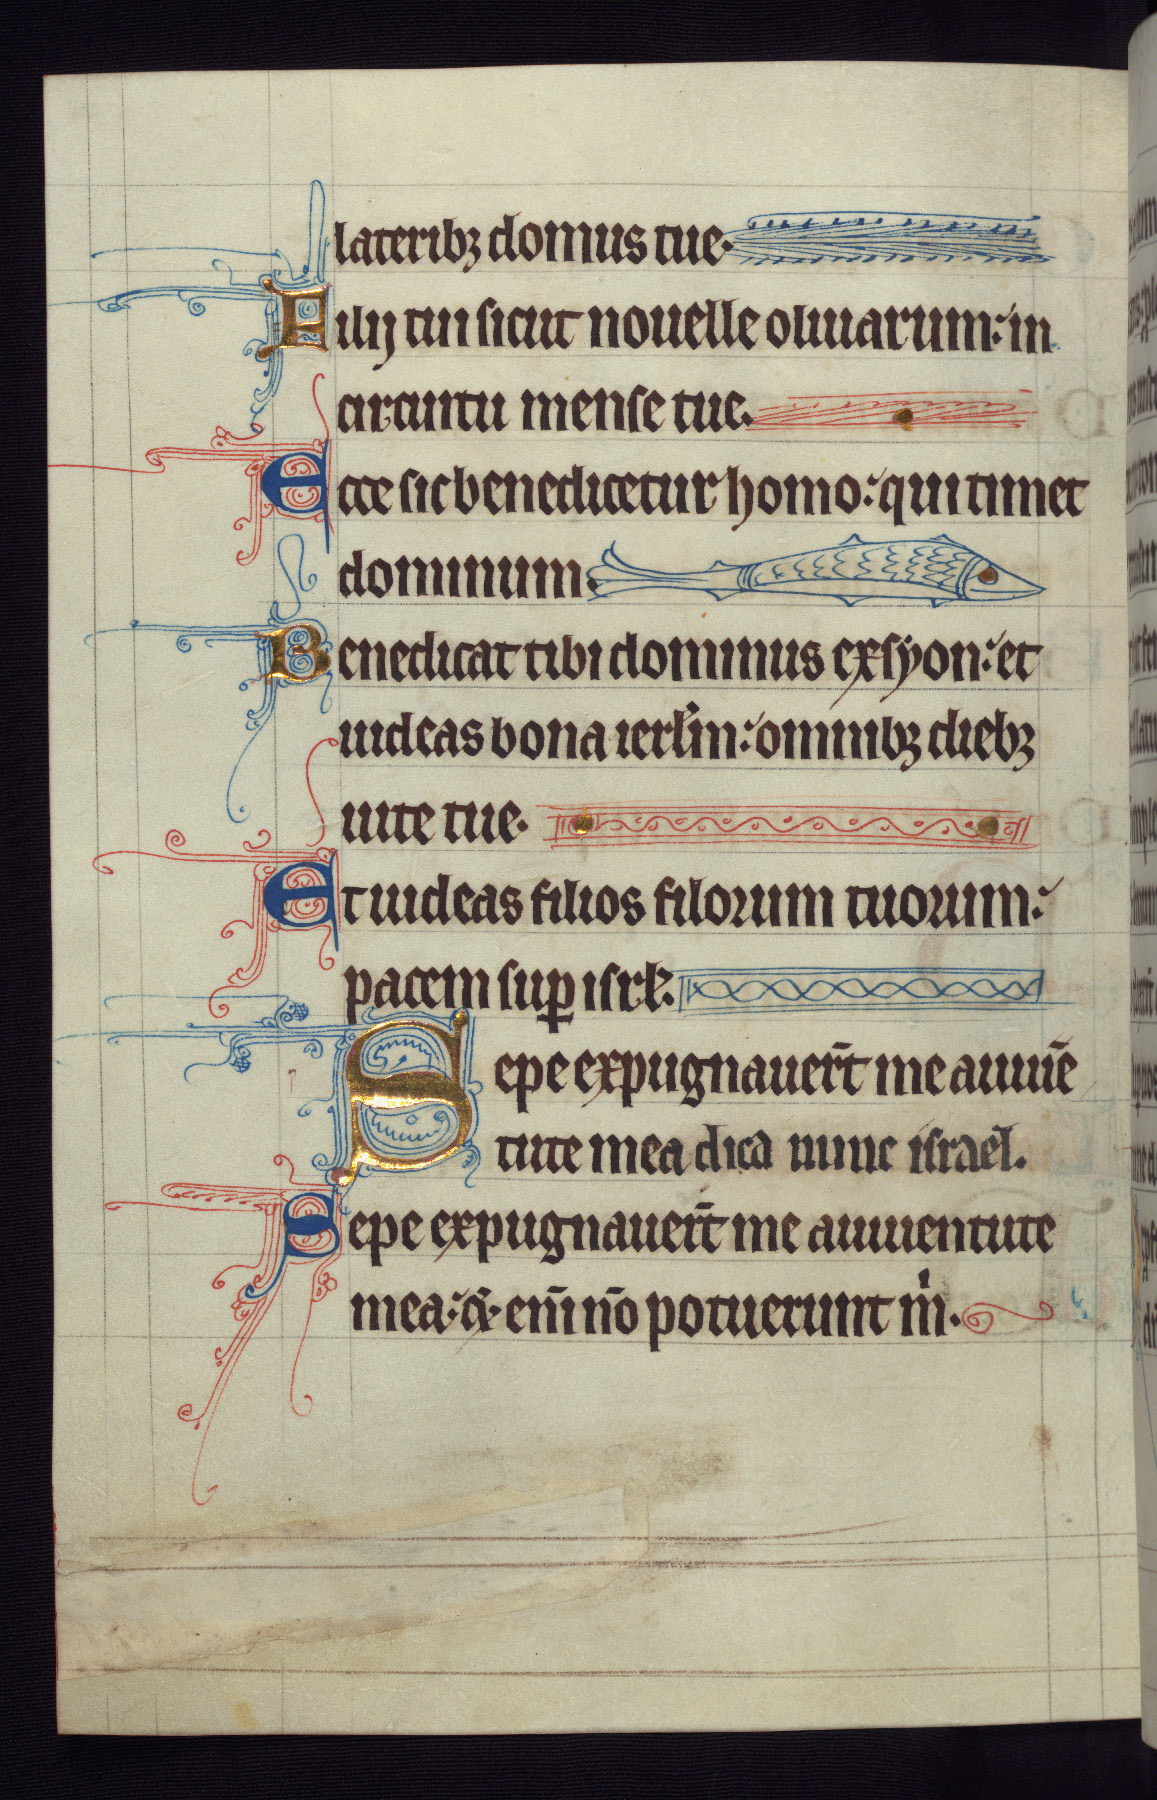 lateribꝫ domus tue.
Filij tui sicut nouelle oliuarum: in
circuitu mense tue.
Ecce sic benedicetur homo: qui timet
dominum.
Benedicat tibi dominus ex syon: et
uideas bona ierl̄m: omnibꝫ diebꝫ
uite tue.
Et uideas filios filorum tuorum:
pacem suꝑ isrl̄.
Sepe expugnauer̄t me a iuuē
tute mea dica nunc israel.
Sepe expugnauer̄t me a iuuentute
mea: &. em̄ nō potuerunt mⁱ.